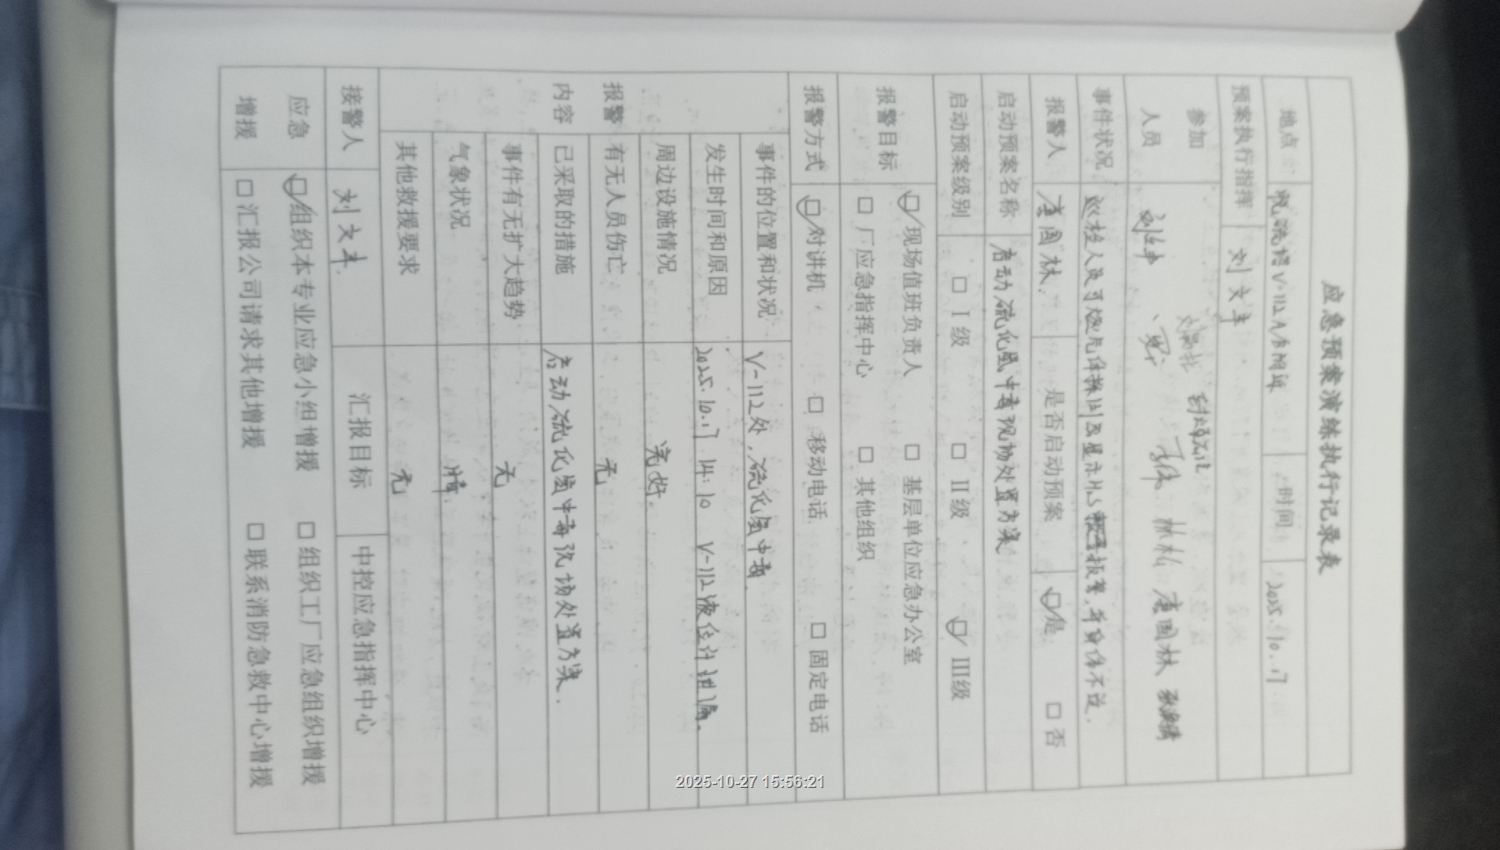 应急预案演练执行记录表
地点 脱硫塔V-112A/B附近 时间 2025.10.17
预案执行指挥 刘文丰
参加
人员 林松 唐国林
事件状况 巡检人员可燃气体探测器显示H₂S报警,并身体不适.
报警人 唐国林. 是否启动预案 ☑是 □否
启动预案名称 启动硫化氢中毒现场处置方案
启动预案级别 □ I 级 □ II级 ☑ III级
报警目标 ☑现场值班负责人 □ 基层单位应急办公室
□ 厂应急指挥中心 □ 其他组织
报警方式 ☑对讲机 □ 移动电话 □ 固定电话
报警
内容
事件的位置和状况 V-112处,硫化氢中毒.
发生时间和原因 2025.10.17 14:10 V-112液位计泄漏.
周边设施情况 完好.
有无人员伤亡 无
已采取的措施 启动硫化氢中毒现场处置方案.
事件有无扩大趋势 无
气象状况 晴
其他救援要求 无
接警人 刘文丰. 汇报目标 中控应急指挥中心
应急
增援
☑组织本专业应急小组增援 □ 组织工厂应急组织增援
□ 汇报公司请求其他增援 □ 联系消防急救中心增援
2025-10-27 15:56:21